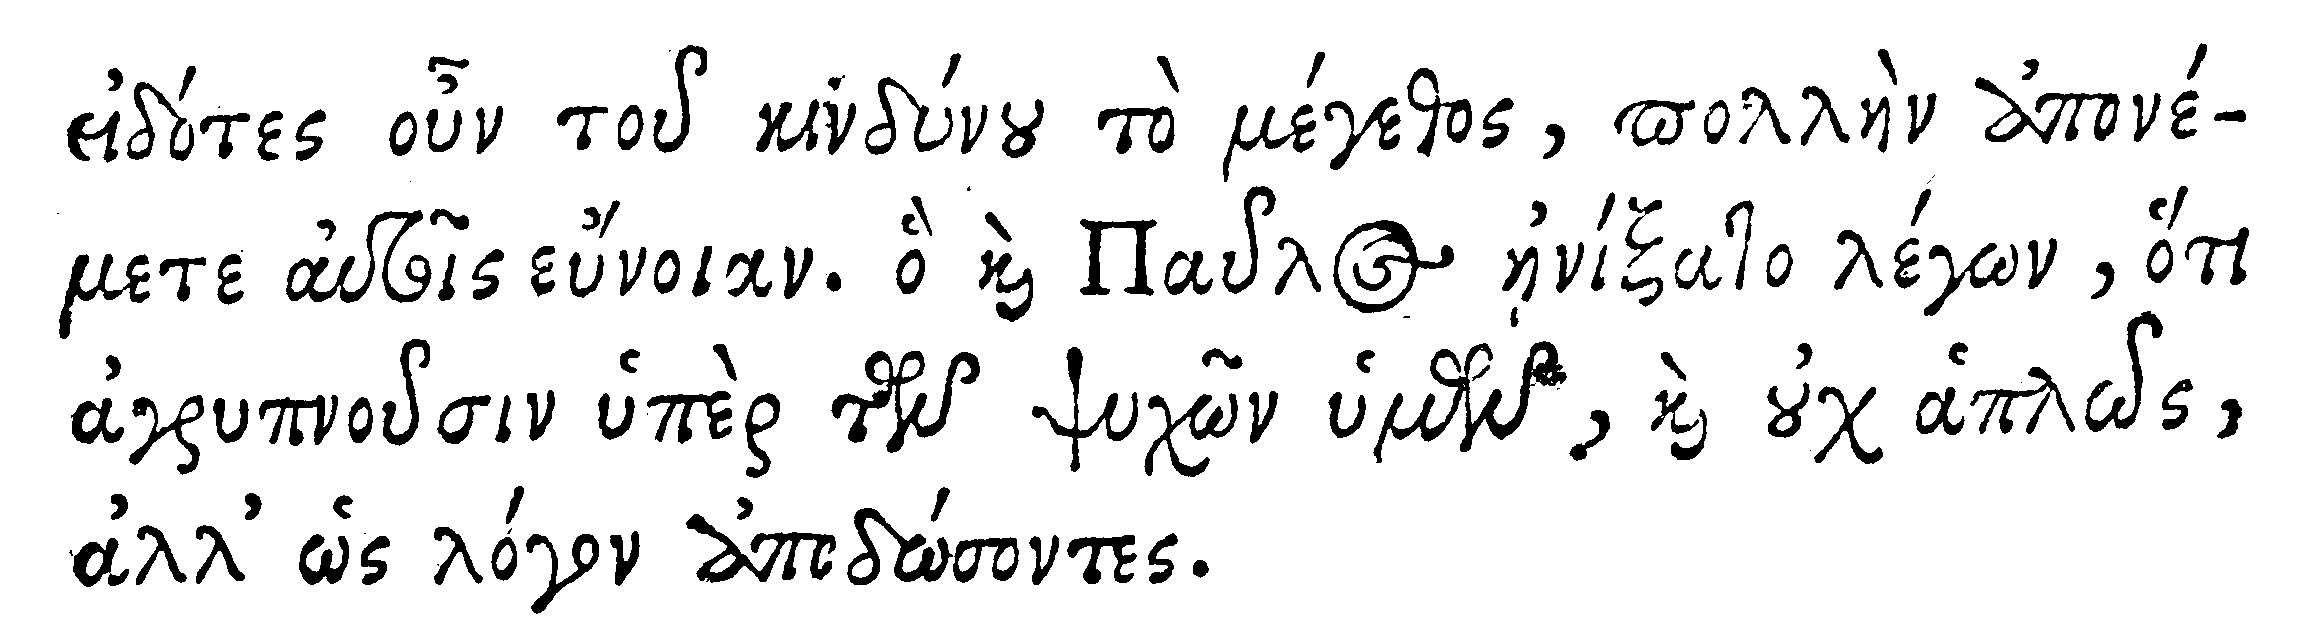 εἰδότες οὖν τοῦ κινδύνου τὸ μέγεθος, πολλὴν ἀπονέ-
μετε αὐτοῖς εὔνοιαν. ὃ καὶ Παῦλος ᾐνίξατο λέγων, ὅτι
ἀγρυπνοῦσιν ὑπὲρ τῶν ψυχῶν ὑμῶν, καὶ οὐχ ἁπλῶς,
ἀλλ' ὡς λόγον ἀποδώσοντες.